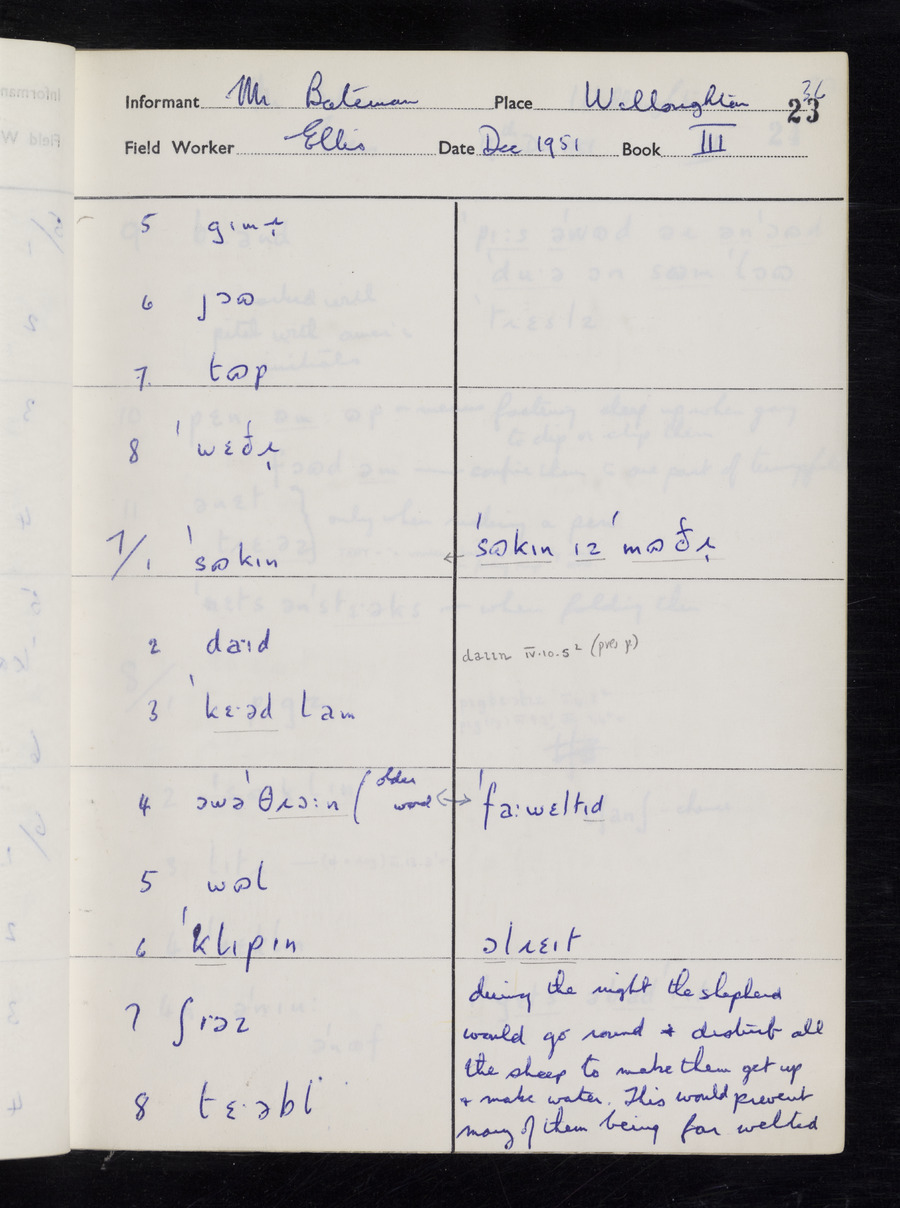 Informant Mr Bateman Place Willoughton 36
23
Field Worker Ellis Date Dec 1951 Book III
5 gɪmɹ̩
6 jɔɷ
7 tɷp
8 ˈwɛðɹ̩
7/1 ˈsɷkɪn ← ˈsɷkɪn ɪz ˈmɷðɹ̩
2 daɪd daɪɪn IV.10.5² (pres p)
3 ˈkɛ·əd lam
4 əwəˈθɹɔ:n (older word ↔ ˈfa:wɛltɪd
5 wɷl
6 ˈklɪpɪn əlɹɛɪt
7 ʃɪəz
8 tɛ·əbl̈
during the night the shepherd
would go round & disturb all
the sheep to make them get up
& make water. This would prevent
many of them being far welted